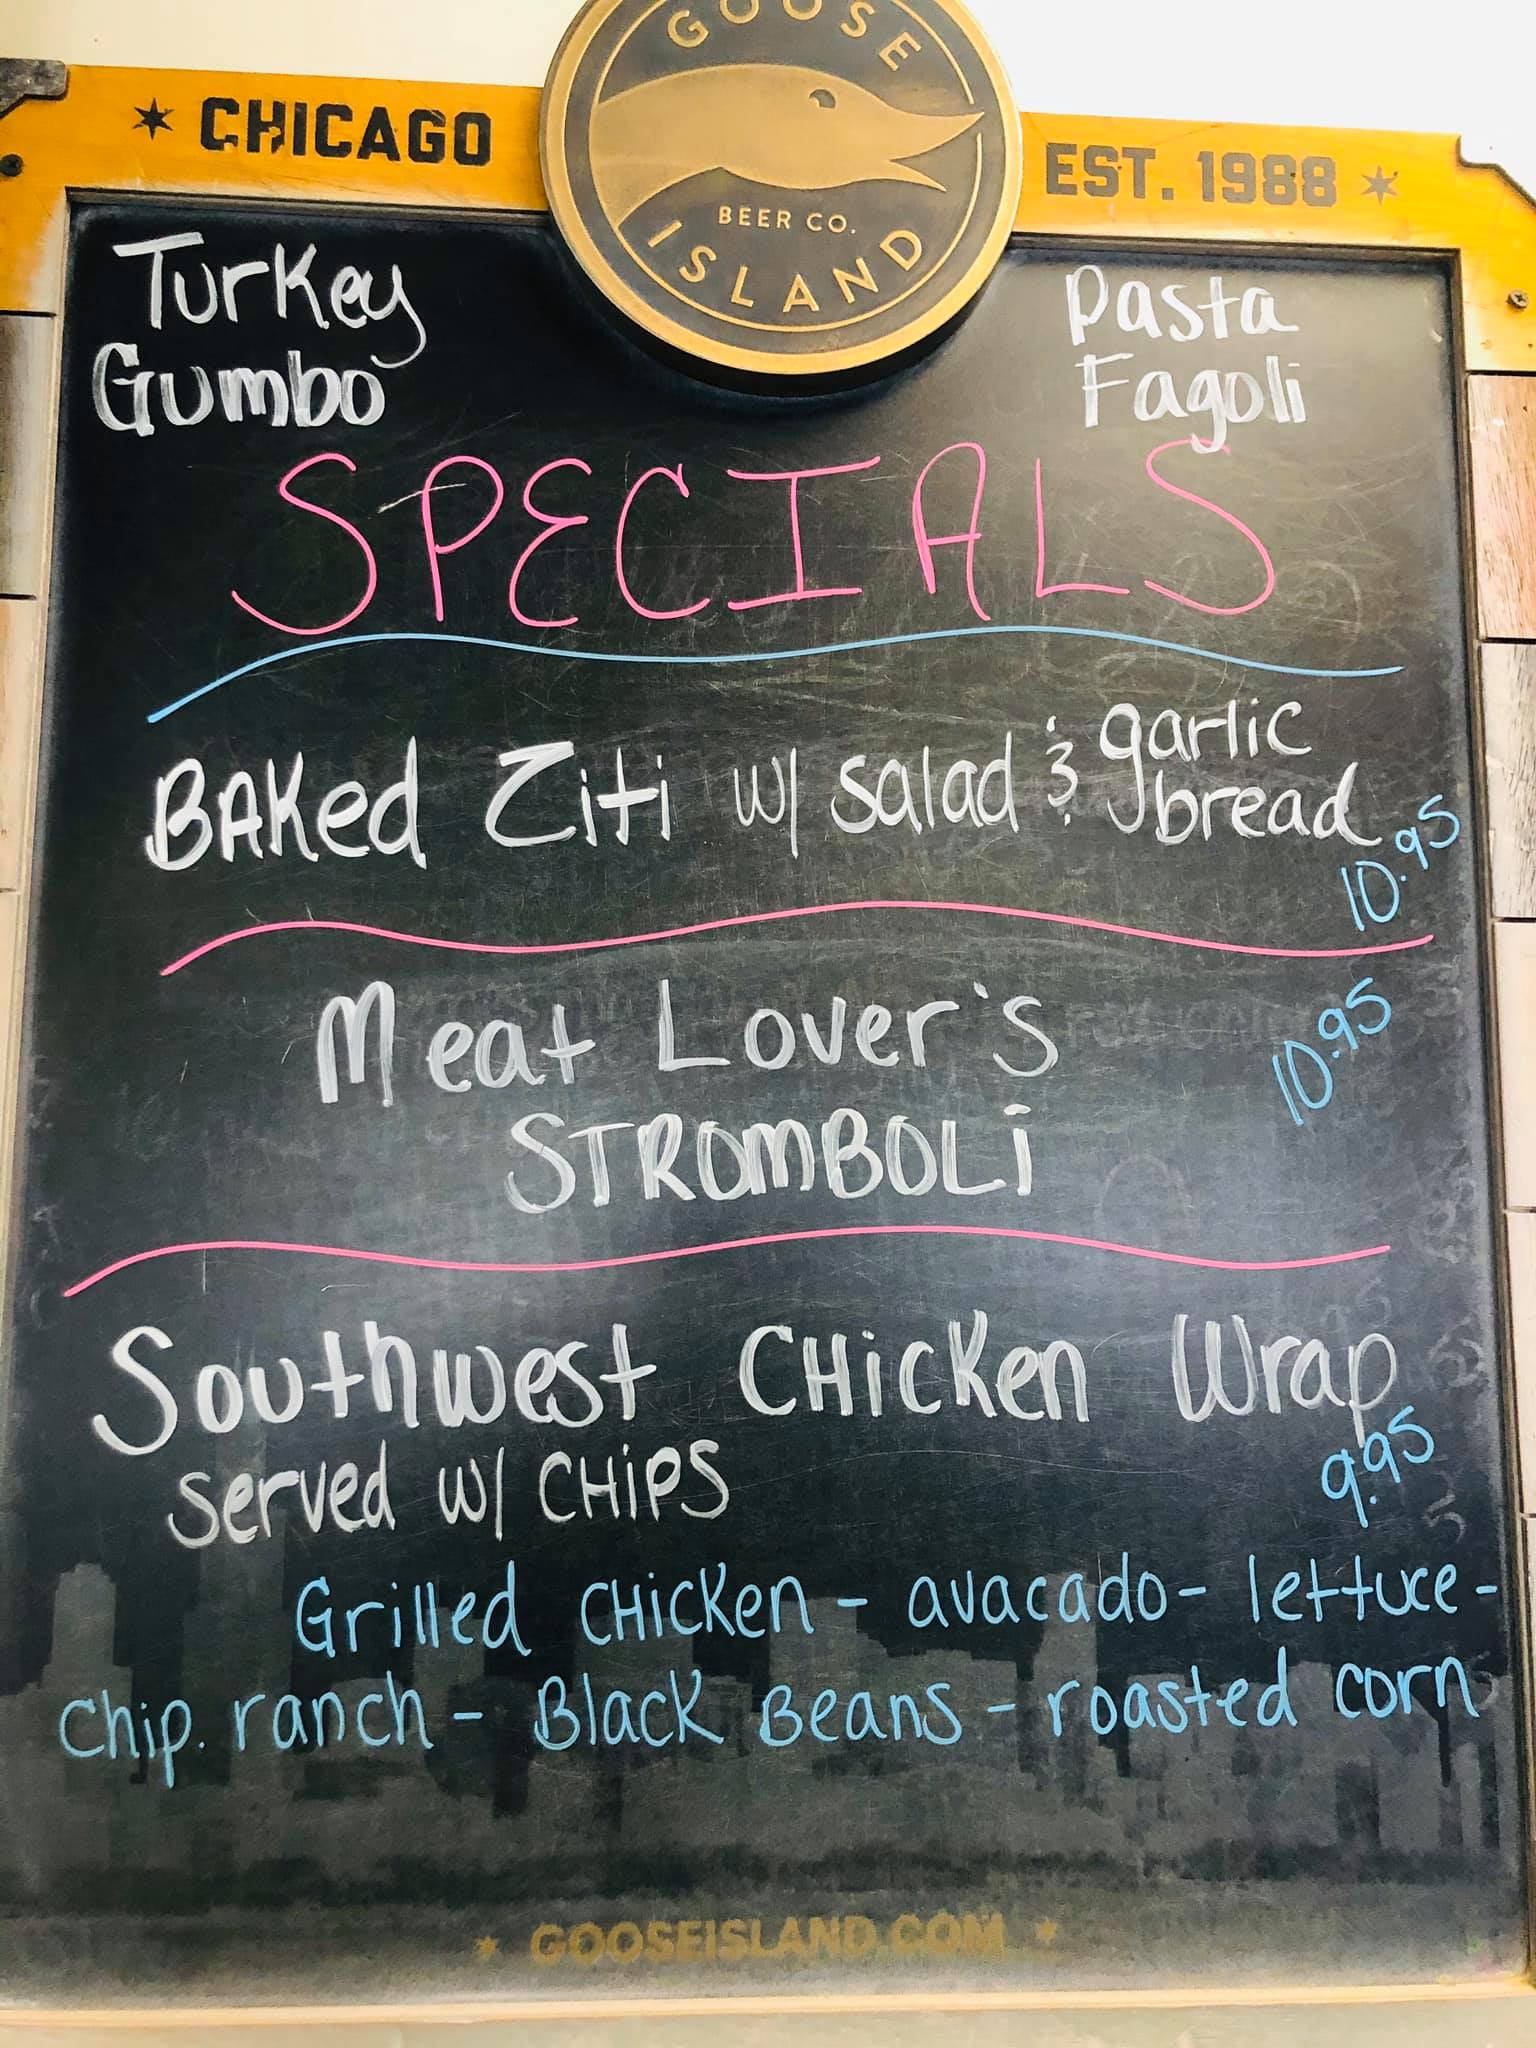 GOOSE
BEER CO.
ISLAND
CHICAGO
EST. 1988
Turkey
Gumbo
Pasta
Fagoli
SPECIALS
BAKed Ziti w/ salad & garlic
bread
10.95
Meat Lover's
10.95
STROMBOLi
Southwest CHicKen Wrap
served w/ CHiPS
9.95
Grilled CHicKen - avacado - lettuce -
Chip. ranch - BlacK Beans - roasted corn
GOOSEISLAND.COM